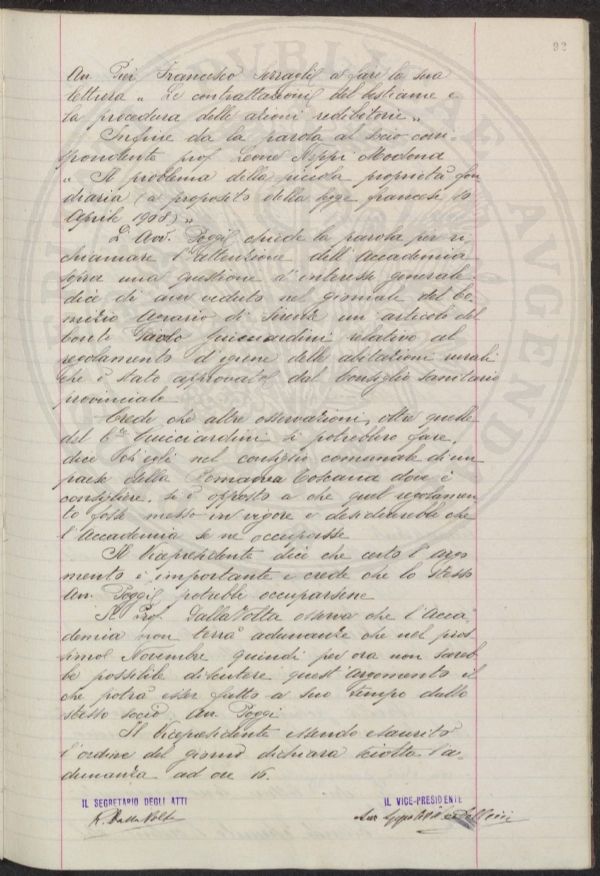 92
Avv. Pier Francesco Serragli a fare la sua
lettura „ Le contrattazioni del bestiame e
la procedura delle azioni redibitorie „
Infine da la parola al socio corri
spondente prof. Leone Neppi Modona
„ Il problema della piccola proprietà fon
diaria (a proposito della legge francese 10
Aprile 1908) „
L'Avv. Poggi chiede la parola per ri
chiamare l'attenzione dell'Accademia
sopra una questione d'interesse generale
dice di aver veduto nel giornale del Co
mizio Agrario di Firenze un articolo del
Conte Paolo Guicciardini relativo al
regolamento d'igiene delle abitazioni rurali
che è stato approvato dal Consiglio sanitario
provinciale
Crede che altre osservazioni, oltre quelle
del Cte Guicciardini si potrebbero fare,
dice che egli nel consiglio comunale di un
paese della Romagna Toscana dove è
consigliere, si è opposto a che quel regolamen
to fosse messo in vigore e desidererebbe che
l'Accademia se ne occupasse
Il Vicepresidente dice che certo l'argo
mento è importante e crede che lo stesso
Avv. Poggi potrebbe occuparsene
Il Prof. DallaVolta osserva che l'Acca
demia non terrà adunanze che nel pros
simo Novembre, quindi per ora non sareb
be possibile discutere quest'argomento il
che potrà esser fatto a suo tempo dallo
stesso socio Avv. Poggi
Il Vicepresidente essendo esaurito
l'ordine del giorno dichiara sciolta l'a-
dunanza ad ore 16.
IL SEGRETARIO DEGLI ATTI
IL VICE-PRESIDENTE
R. DallaVolta